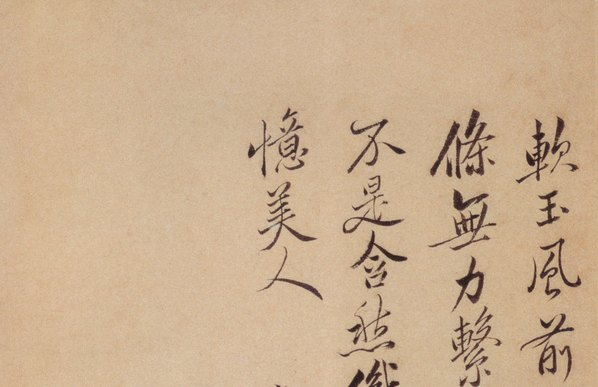 軟玉風前
條無力繫
不是含愁
憶美人